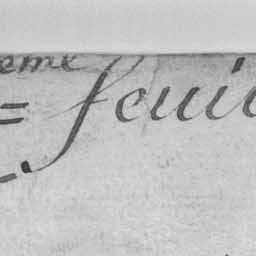 eme
= feui